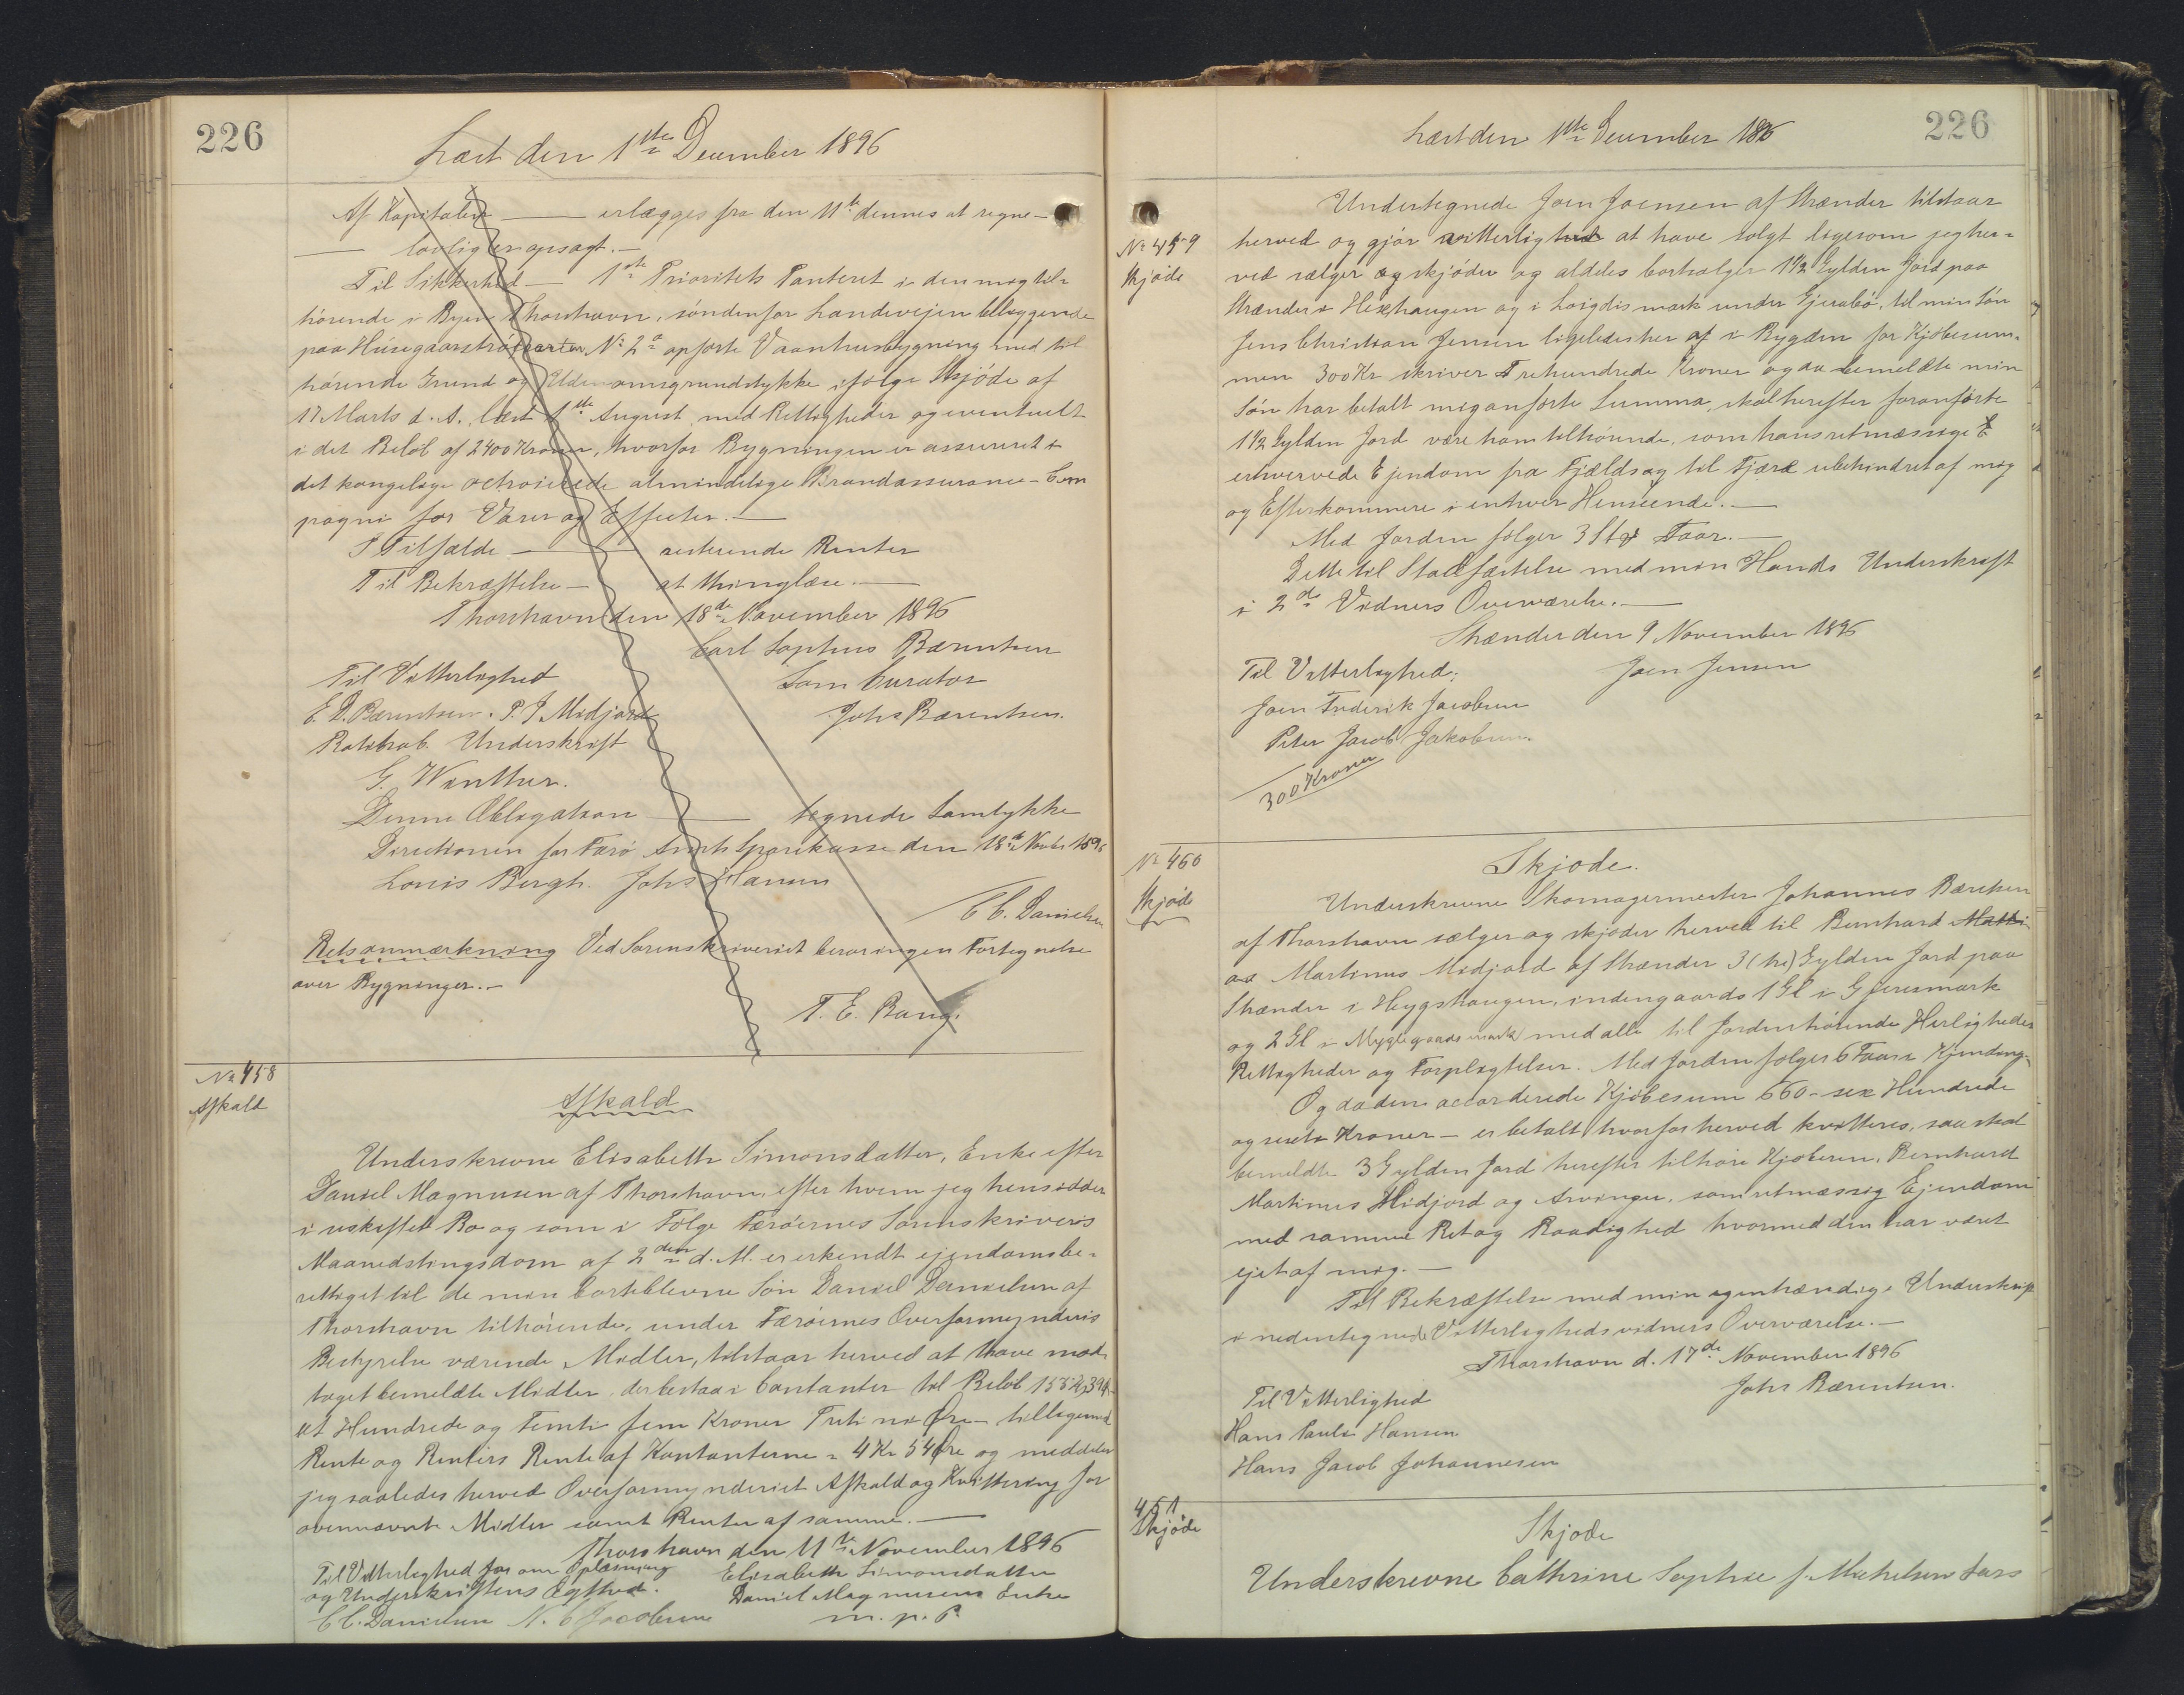 226
Læst den 1ste December 1896
Af Kapitalen — erlægges fra den 11te dennes at regne —
— lovlig er opsagt. —
Til Sikkerhed — 1ste Prioritets Panteret i den mig til-
hørende i Byen Thorshavn, søndenfor Landevejen beliggende
paa Húsegaarstrø No 2a opførte Vaanhusbygning med til
hørende Grund og Udenomsgrundstykke ifølge Skjøde af
17 Marts d. A., læst 1ste August, med Rettigheder og eventuelt
i det Beløb af 2400 Kroner, hvorfor Bygningen er assureret i
det kongelige octroierede almindelige Brandassurance-Com
pagni for Varer og Effecter. —
I Tilfælde — — resterende Renter
Til Bekræftelse — at thinglæse. —
Thorshavn den 18de November 1896
Carl Sophus Bærentsen
Til Vitterlighed Som Curator
E. D. Bærentsen. P. J. Midjord Johs Bærentsen.
Ratihab. Underskrift
G. Winther.
Denne Obligation — tegnede Samtykke
Directionen for Færø Amts Sparekasse den 18de Novbr 1896
Louis Bergh. Johs Hansen
C C. Danielsen
Retsanmærkning Ved Sorenskriveriet beror ingen Fortegnelse
over Bygninger. —
T. E. Bang.
No 458
Afkald
Afkald
Underskrevne Elisabeth Simonsdatter, Enke efter
Daniel Magnusen af Thorshavn, efter hvem jeg hensidder
i uskiftet Bo og som i Følge Færøernes Sorenskriveris
Maanedstingsdom af 2den d. M. er erkendt ejendomsbe-
rettiget til de min bortblevne Søn Daniel Danielsen af
Thorshavn tilhørende, under Færøernes Overformynderis
Bestyrelse værende Midler, tilstaar herved at have mod-
taget bemeldte Midler, der bestaar i Contanter til Beløb 155 Kr 39 Ø —
et Hundrede og Femti fem Kroner Treti ni Øre — tilligemed
Rente og Renters Rente af Kontanterne = 4 Kr 54 Øre og meddeler
jeg saaledes herved Overformynderiet Afkald og Kvittering for
ovennævnte Midler samt Renter af samme. —
Thorshavn den 11te November 1896
Til Vitterlighed for om Oplæsning Elisabeth Simonsdatter
og Underskriftens Ægthed. Daniel Magnusens Enke
C C. Danielsen N. C Jacobsen m. p. P.
226
Læst den 1ste December 1896
No 459
Skjøde
Undertegnede Joen Joensen af Strænder tilstaar
herved og gjør vitterligt at have solgt ligesom jeg her-
ved sælger og skjøder og aldeles bortsælger 1 1/2 Gylden Jord paa
Strænder i Hexhaugen og i Loigdismark under Gjerabø, til min Søn
Jens Christian Jensen ligeledes her af i Bygden for Kjøbesum-
men 300 Kr skriver Trehundrede Kroner og da bemeldte min
Søn har betalt mig anførte Summa, skal herefter foranførte
1 1/2 Gylden Jord være ham tilhørende, som hans retmæssige
erhvervede Ejendom fra Fjælds og til Fjære ubehindret af mig
og Efterkommere i enhver Henseende. —
Med Jorden følger 3 Stk Faar. —
Dette til Stadfæstelse med min Hands Underskrift
i 2de Vidners Overværelse. —
Strænder den 9 November 1896
Til Vitterlighed: Joen Jensen
Joen Frederik Jacobsen
Peter Jacob Jakobsen.
300 Kroner
No 460
Skjøde
Skjøde.
Underskrevne Skomagermester Johannes Bærentsen
af Thorshavn sælger og skjøder herved til Bernhard Matti
as Martinus Midjord af Strænder 3 (tre) Gylden Jord paa
Strænder i Heygshaugen, indengaards 1 Gl i Gjeresmark
og 2 Gl i Myglegaardsmark med alle til Jorden hørende Herligheder
Rettigheder og Forpligtelser. Med Jorden følger 6 Faars Kjending.
Og da den accorderede Kjøbesum 660 — sex Hundrede
og sexti Kroner — er betalt hvorfor herved kvitteres, saa skal
bemeldte 3 Gylden Jord herefter tilhøre Kjøberen, Bernhard
Martinus Midjord og Arvinger, som retmæssig Ejendom
med samme Ret og Raadighed hvormed den har været
ejet af mig. —
Til Bekræftelse med min egenhændige Underskrift
i nedentegnede Vitterlighedsvidners Overværelse. —
Thorshavn d. 17de November 1896
Til Vitterlighed Johs Bærentsen.
Hans Pauli Hansen
Hans Jacob Johannesen
461
Skjøde
Skjøde
Underskrevne Cathrine Sophie f. Michelsen Lars